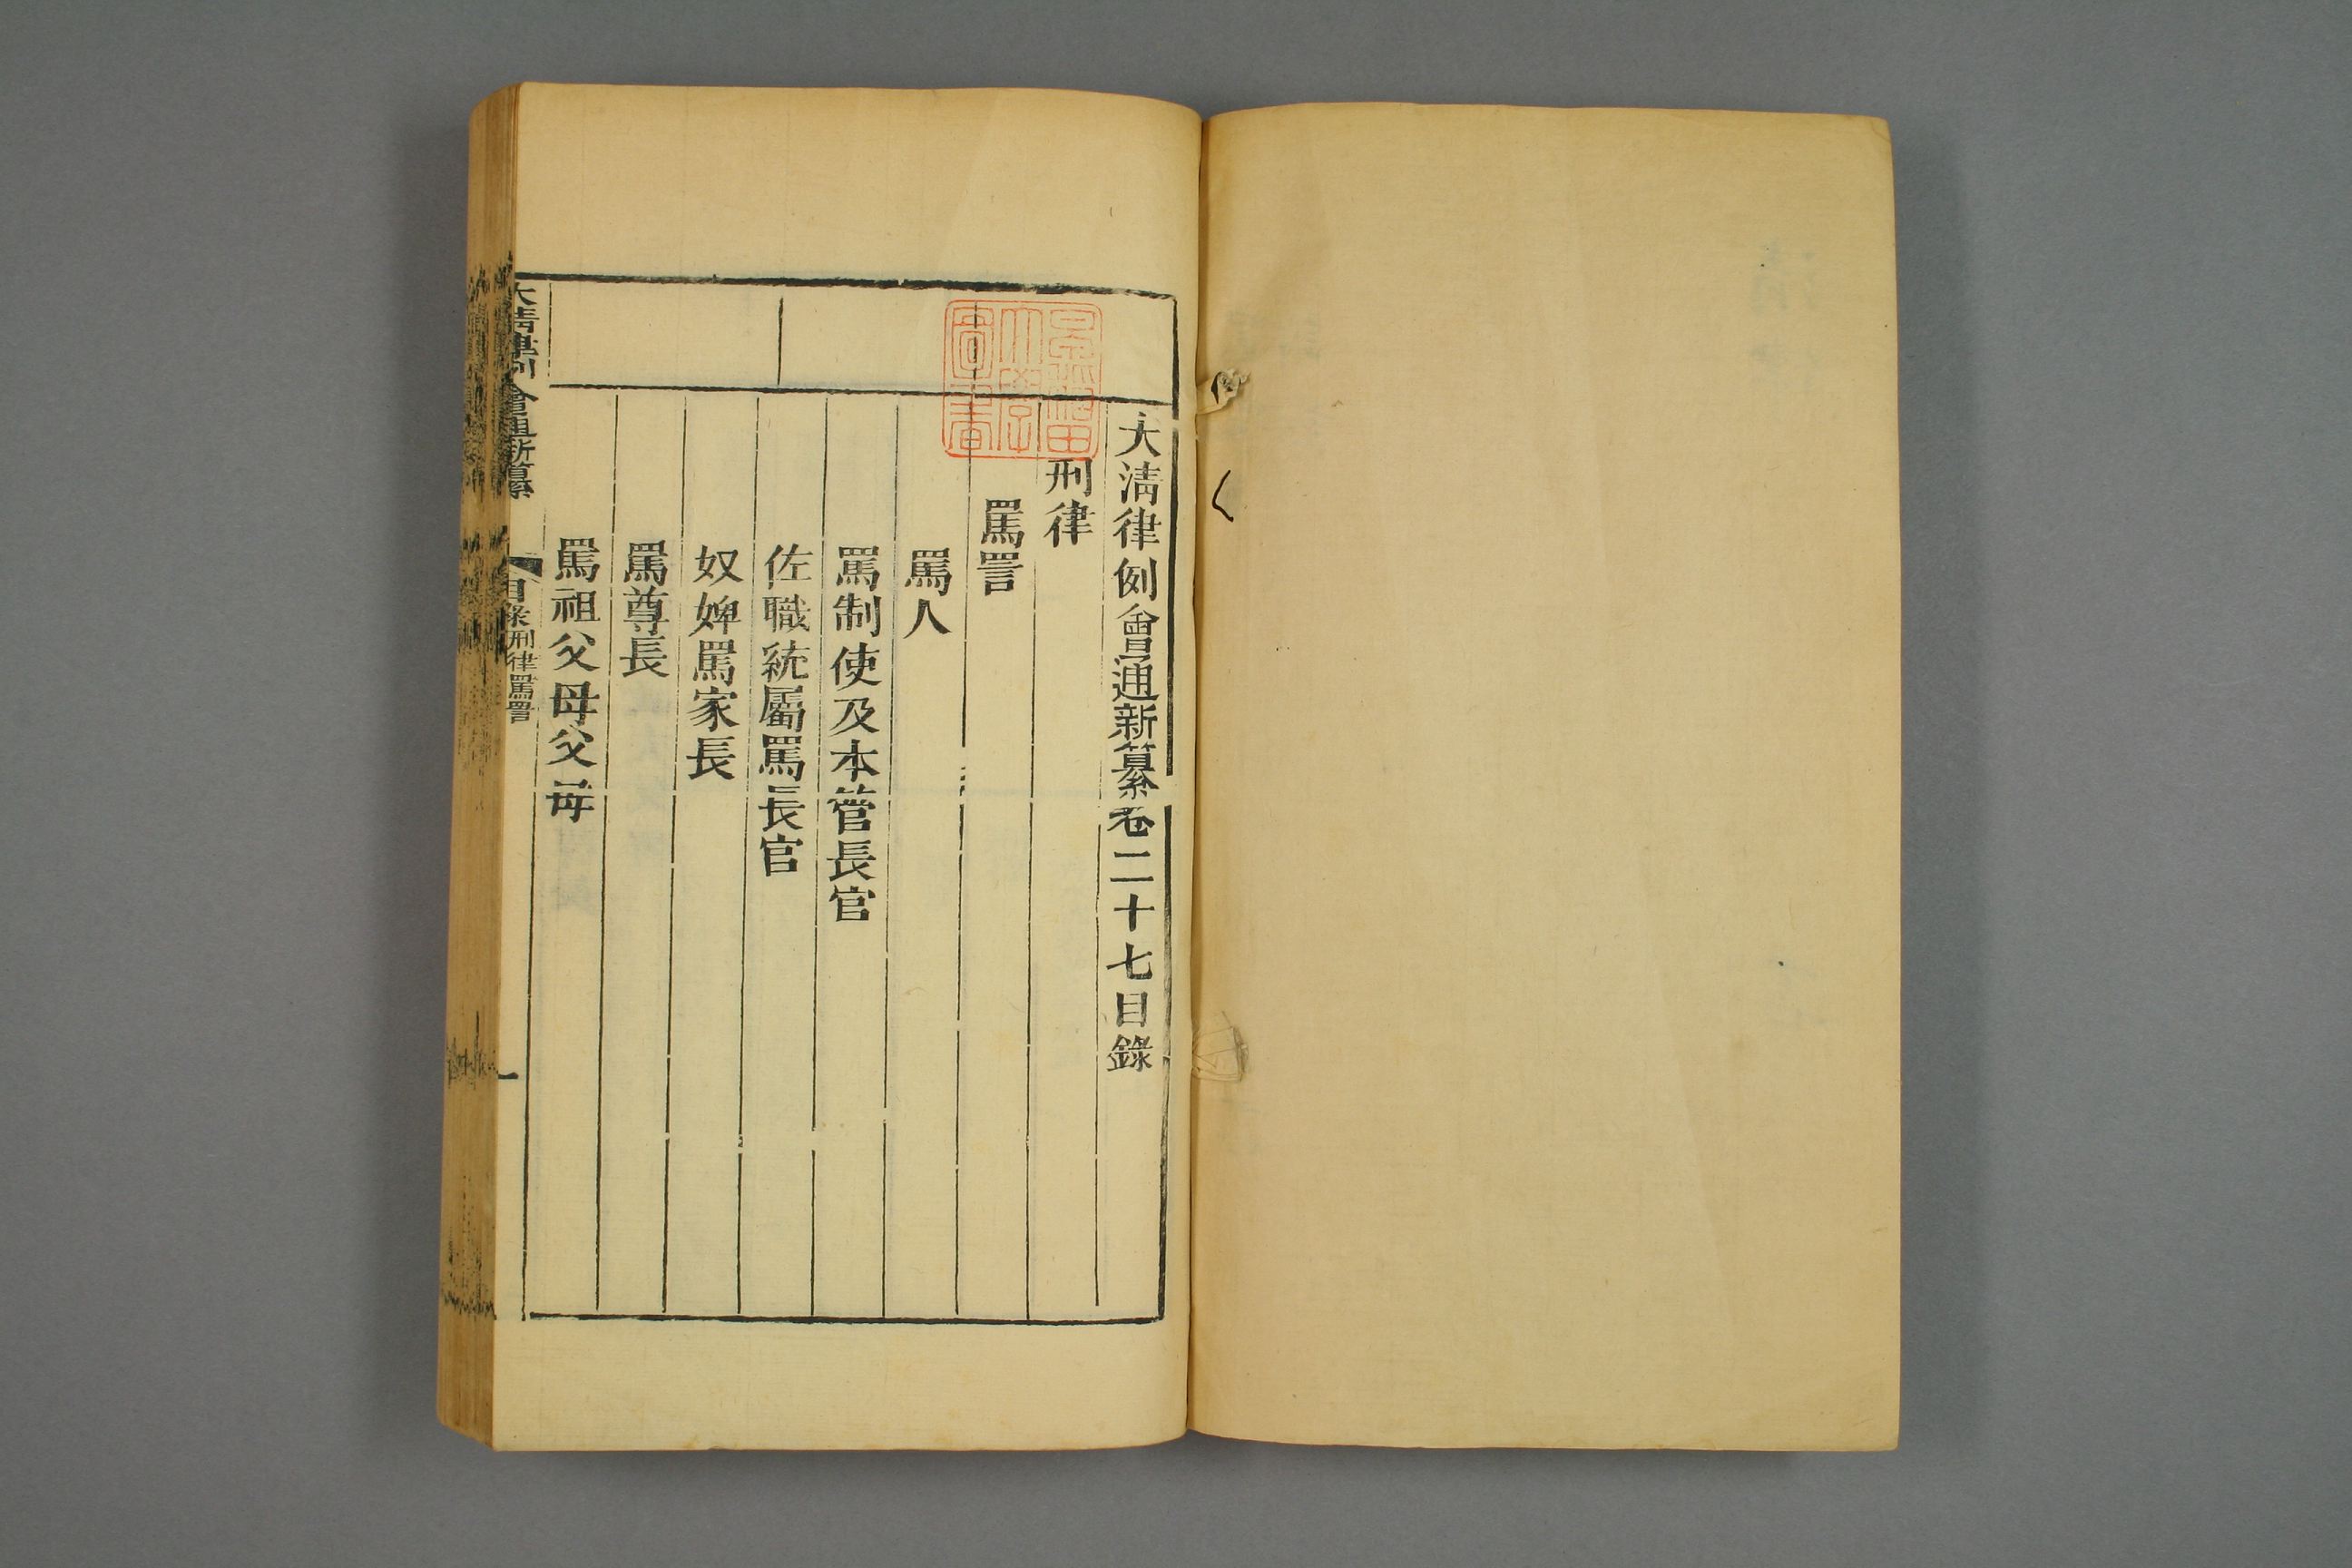 大清律例會通新纂卷二十七目錄
刑律
罵詈
罵人
罵制使及本管長官
佐職統屬罵長官
奴婢罵家長
罵尊長
罵祖父母父母
大清律例會通新纂
目錄 刑律罵詈
一